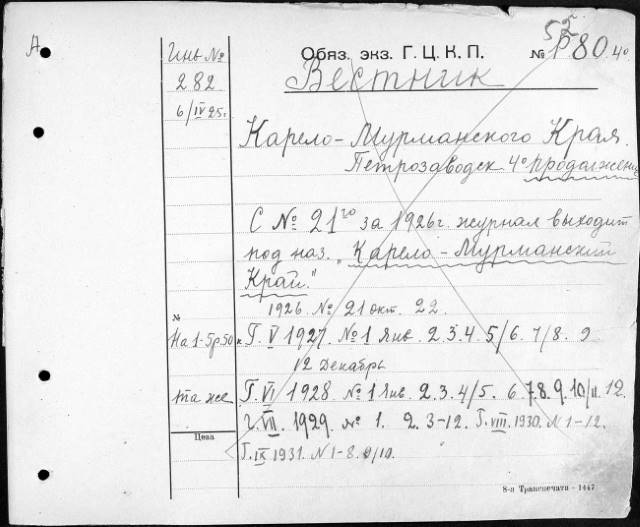 А
Инв №
282
6/IV 25г
Обяз. экз. Г. Ц. К. П.
52
№ Р. 80. 4º
Вестник
Карело-Мурманского Края.
Петрозаводск 4º продолжение
С № 21го за 1926г. журнал выходит
под наз. „Карело-Мурманский
Край."
1926. № 21 окт. 22.
№
На 1-5р.50к
Г. V 1927. № 1 Янв. 2. 3. 4. 5/6. 7/8. 9
12 Декабрь
та же
Г. VI 1928. № 1 Янв. 2. 3. 4/5. 6. 7. 8. 9. 10/11. 12.
Цена
Г. VII. 1929. № 1. 2. 3-12. Г. VIII. 1930. N 1-12.
Г. IX 1931. N 1-8. 9/10.
8-я Транспечати - 1447